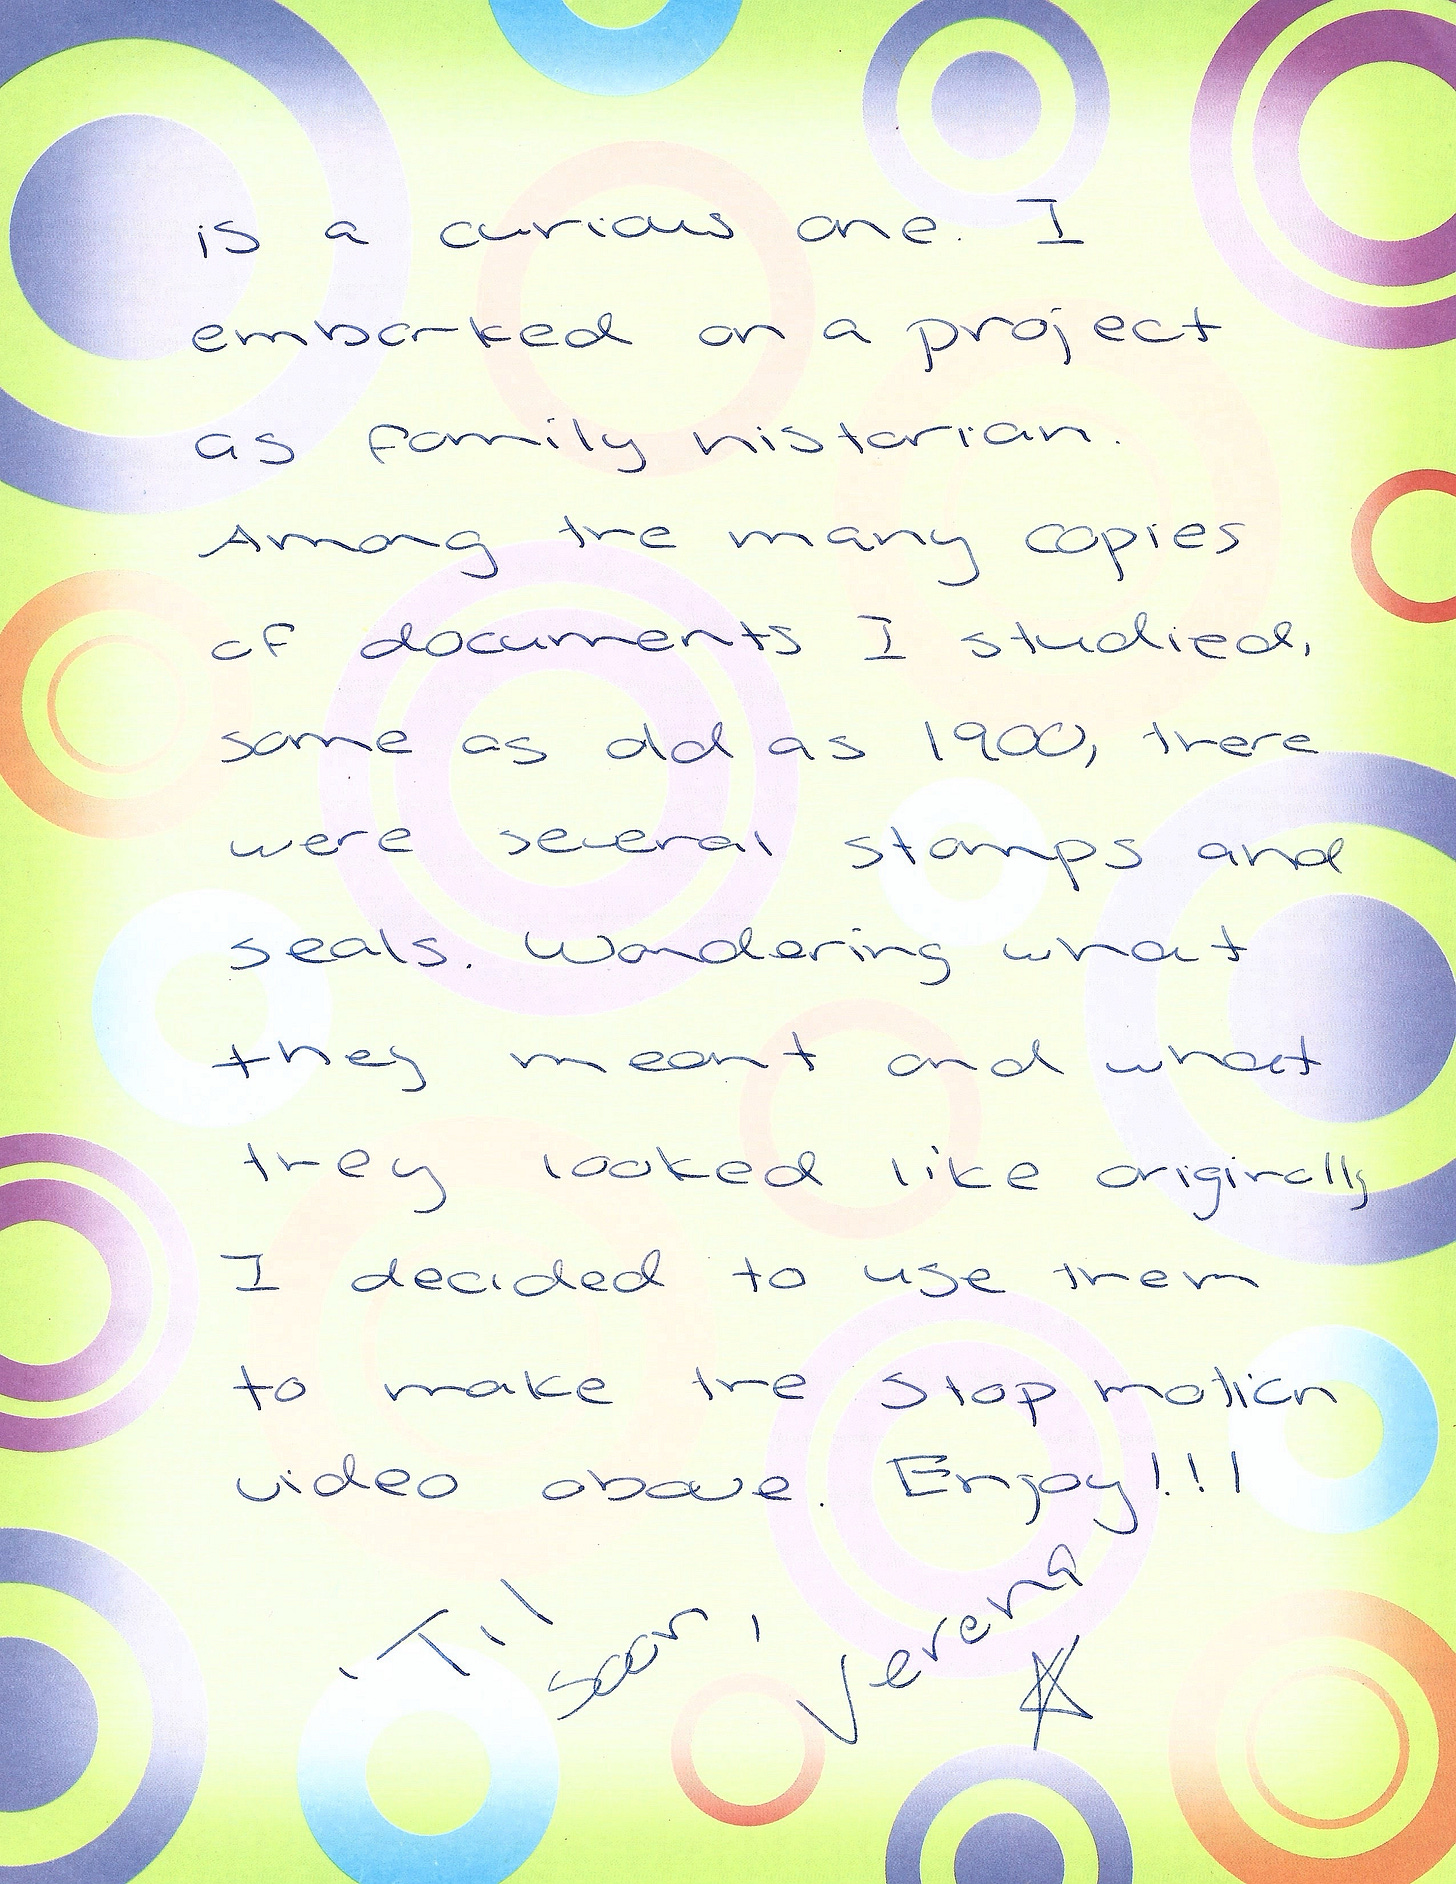 is a curious one. I
embarked on a project
as family historian.
Among the many copies
of documents I studied,
some as old as 1900, there
were several stamps and
seals. Wondering what
they meant and what
they looked like originally
I decided to use them
to make the stop motion
video above. Enjoy!!!
'Til soon, Verena